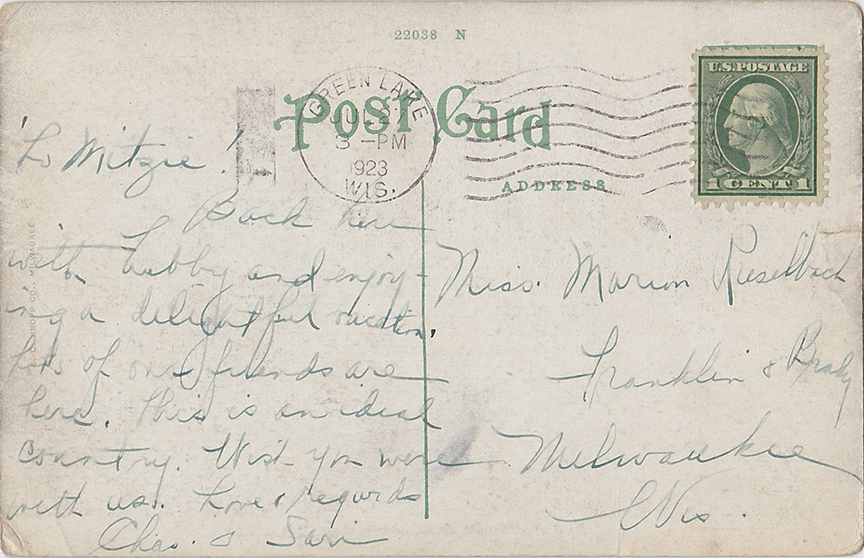 22038 N
Post Card
ADDRESS
GREEN LAKE
JUL 27
3 - PM
1923
WIS.
U.S. POSTAGE
1 CENT 1
Mitzie!
Back here
with hubby and enjoy-
ing a delightful vacation.
Lots of our friends are
here. This is an ideal
country. Wish you were
with us. Love & regards
Chas. &
Miss. Marion
Franklin & Brady
Milwaukee
Wis.